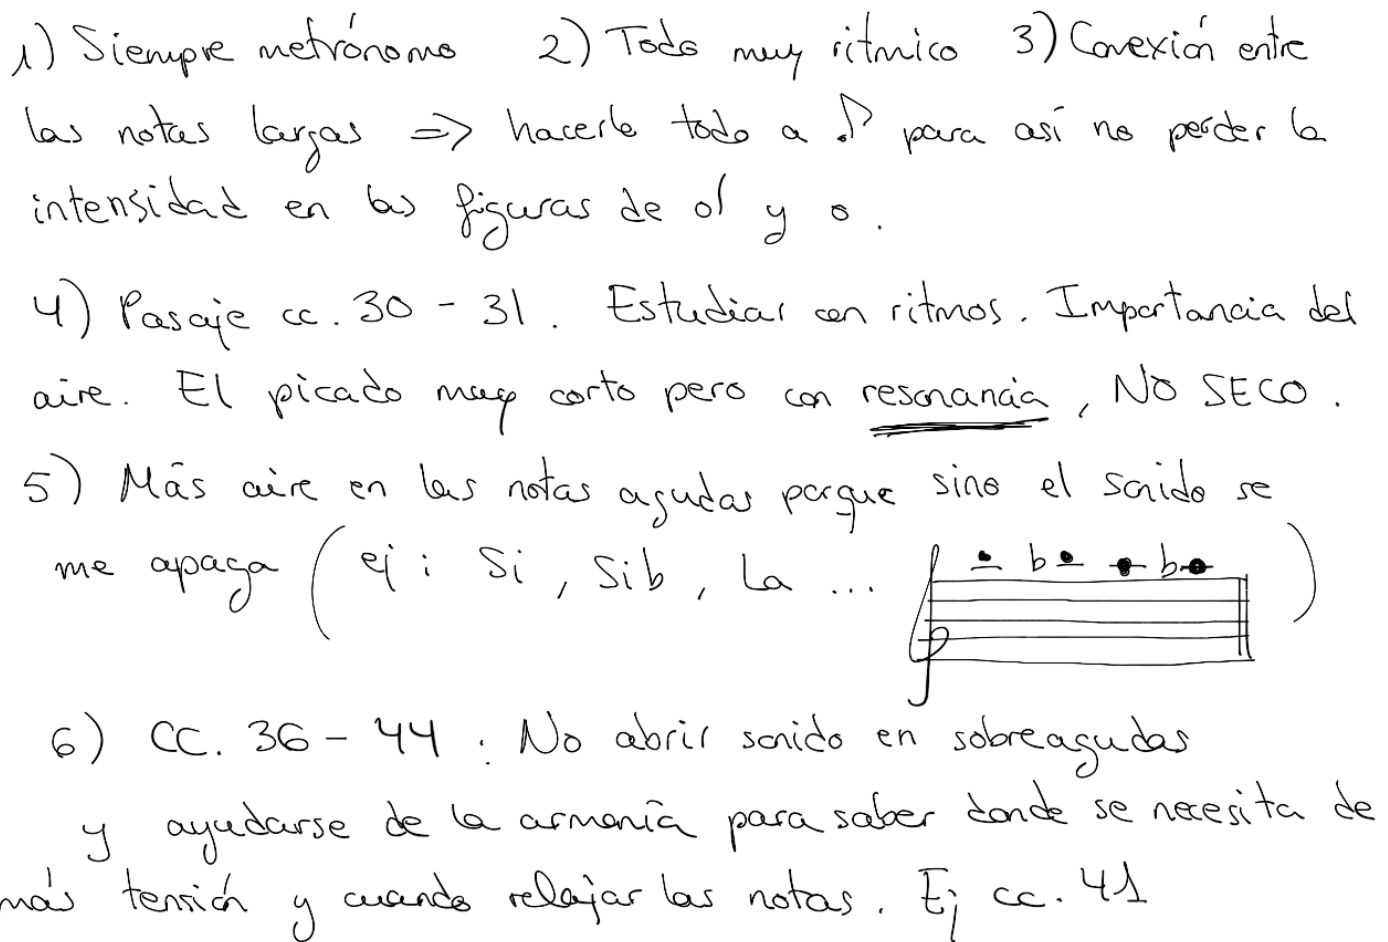 1) Siempre metrónomo 2) Todo muy ritmico 3) Conexión entre
las notas largas => hacerlo todo a ♪ para así no perder la
intensidad en las figuras de 𝅗𝅥 y 𝅝.
4) Pasaje cc. 30 - 31. Estudiar con ritmos. Importancia del
aire. El picado muy corto pero con resonancia, NO SECO.
5) Más aire en las notas agudas porque sino el sonido se
me apaga (ej: Si, Sib, La ... b b)
6) CC. 36 - 44: No abrir sonido en sobreagudas
y ayudarse de la armonía para saber donde se necesita de
más tensión y cuando relajar las notas. Ej cc. 41